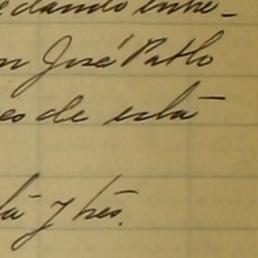 edando entre-
n José Pablo
es de esta
ta y tres.